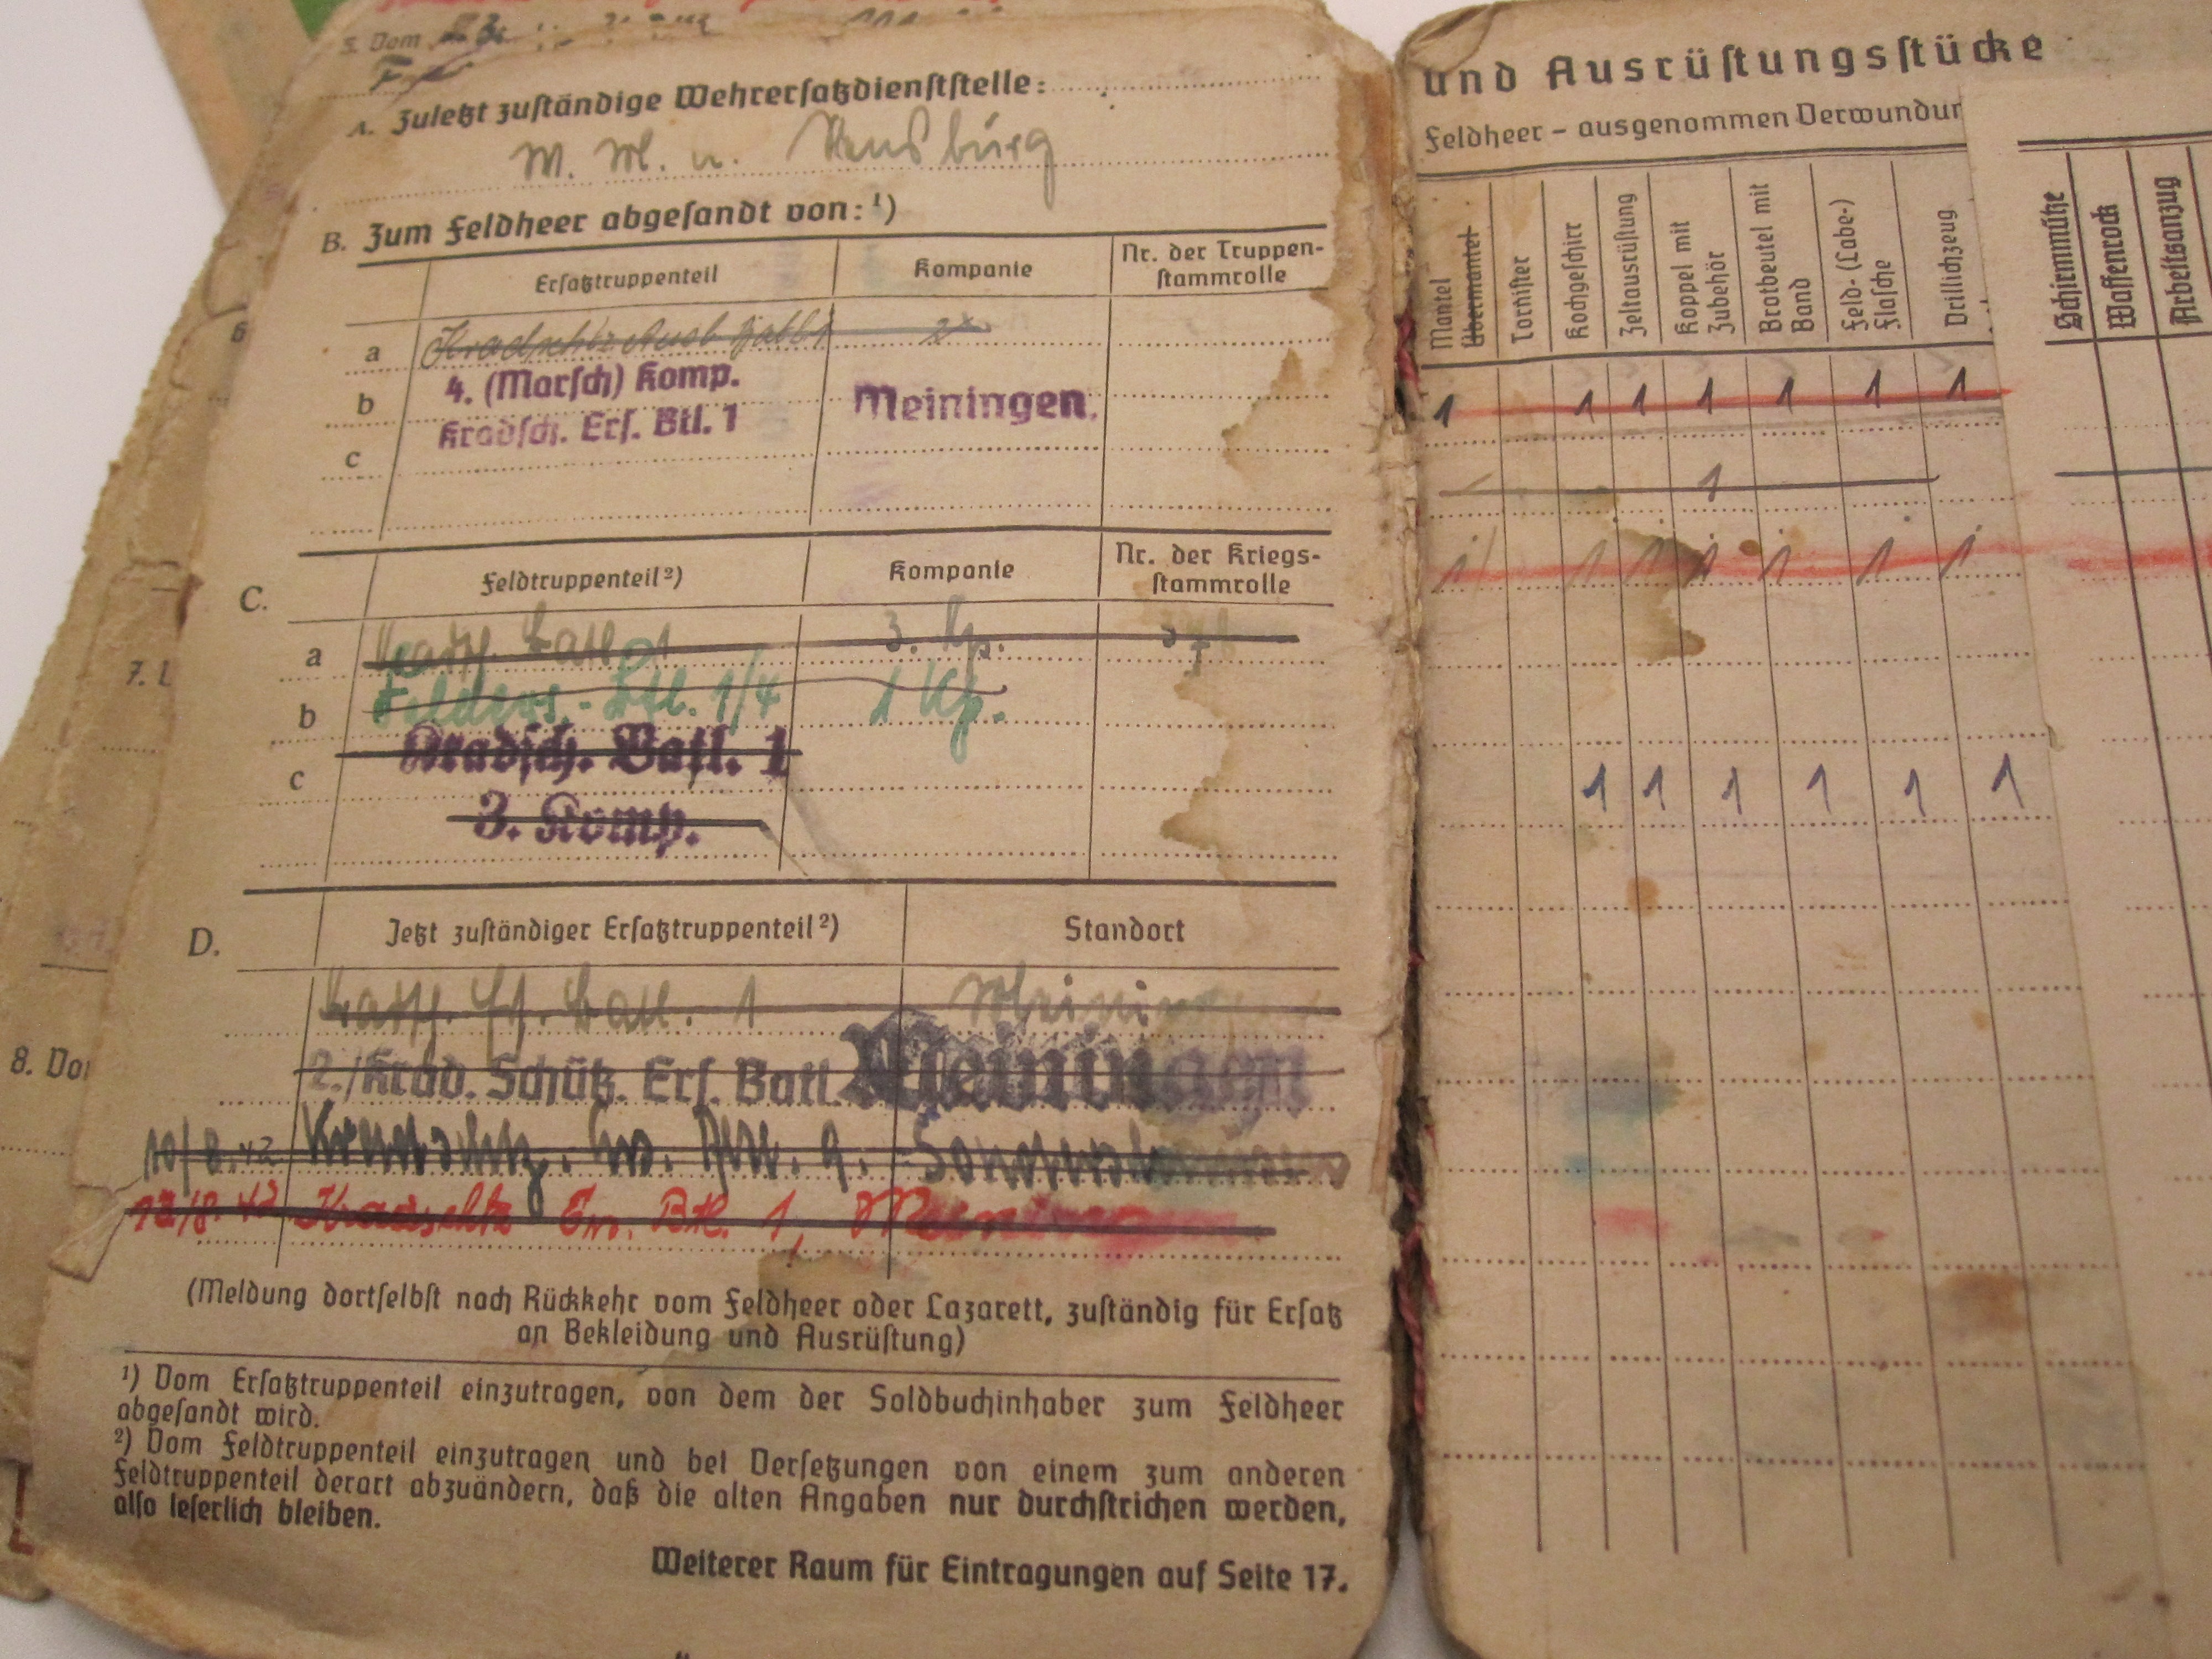 5. Vom
A. Zuletzt zuständige Wehrersatzdienststelle:
W. M. A.
B. Zum Feldheer abgesandt von: ¹)
Ersatztruppenteil Kompanie Nr. der Truppen-
stammrolle
a Kradschtz Ausb Batl 1 2
b 4. (Marsch) Komp. Meiningen.
c Kradsch. Ers. Btl. 1
C. Feldtruppenteil ²) Kompanie Nr. der Kriegs-
stammrolle
a Batl. 1 3. Kp.
b Felders.-Btl. 1/4 1 Kp.
Kradsch. Batl. 1
c
3. Komp.
D. Jetzt zuständiger Ersatztruppenteil ²) Standort
Batl. 1 Meiningen
2./Krad. Schütz. Ers. Batl. Meiningen
10/8.42
12/8.42 Kradschtz Btl. 1, Meiningen
(Meldung dortselbst nach Rückkehr vom Feldheer oder Lazarett, zuständig für Ersatz
an Bekleidung und Ausrüstung)
¹) Vom Ersatztruppenteil einzutragen, von dem der Soldbuchinhaber zum Feldheer
abgesandt wird.
²) Vom Feldtruppenteil einzutragen und bei Versetzungen von einem zum anderen
Feldtruppenteil derart abzuändern, daß die alten Angaben nur durchstrichen werden,
also leserlich bleiben.
Weiterer Raum für Eintragungen auf Seite 17.
6
7.
8.
und Ausrüstungsstücke
Feldheer – ausgenommen Verwundun
Mantel
Übermantel
Tornister
Kochgeschirr
Zeltausrüstung
Koppel mit
Zubehör
Brotbeutel mit
Band
Feld- (Labe-)
Flasche
Drillichzeug
1 1 1 1 1 1 1
1
1 1 1 1 1 1 1
1 1 1 1 1 1
Schirmmütze
Waffenrock
Arbeitsanzug